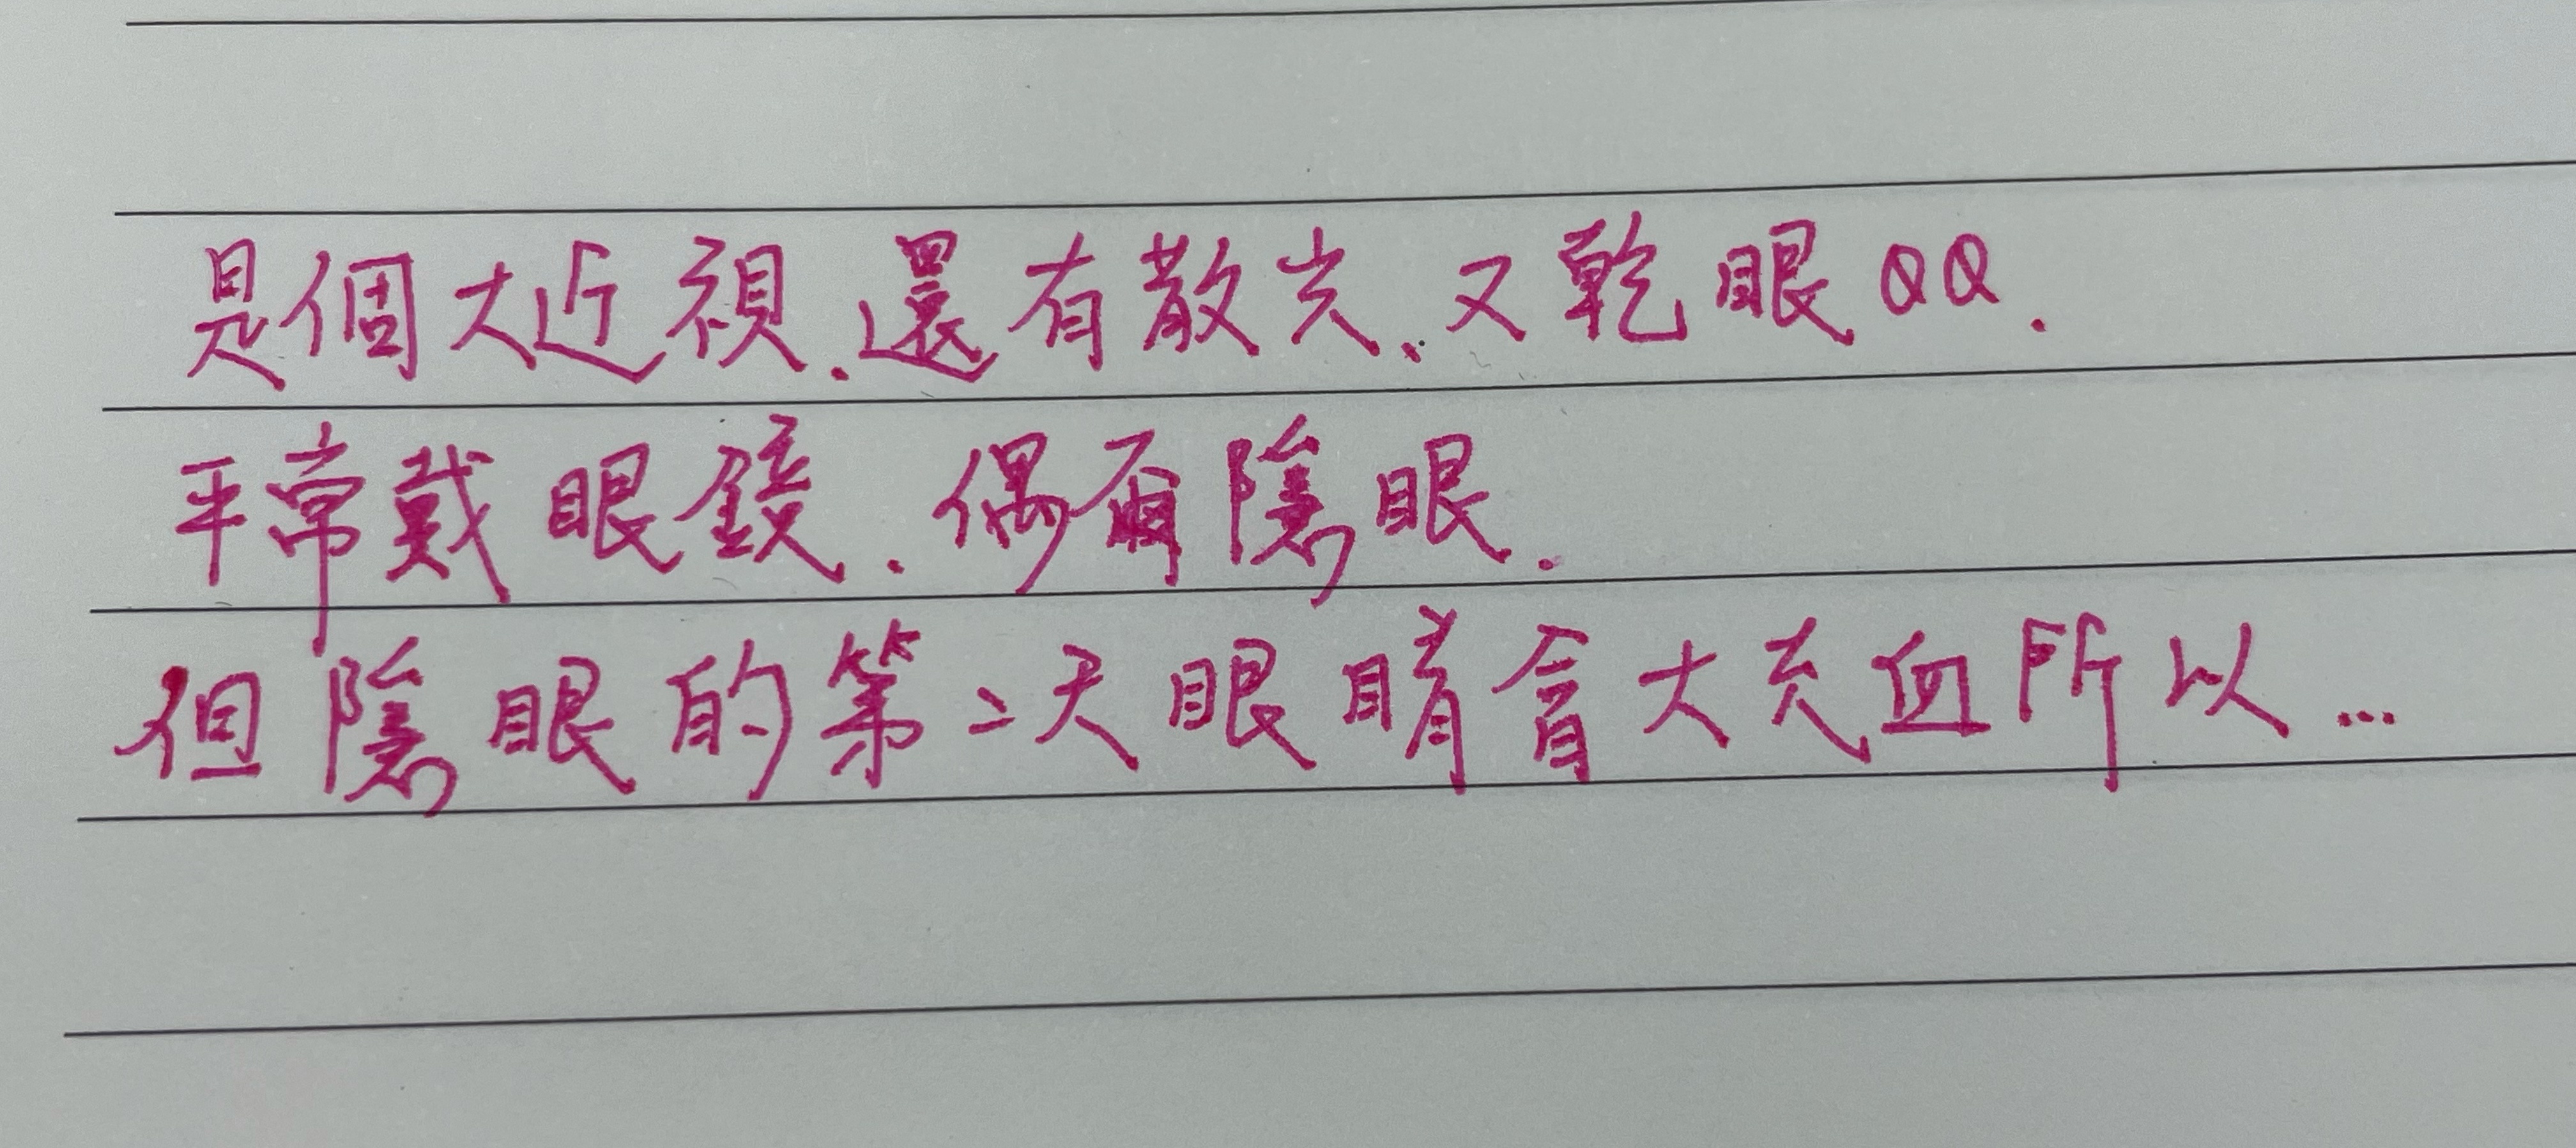 是個大近視.還有散光.又乾眼QQ.
平常戴眼鏡.偶爾隱眼.
但隱眼的第二天眼睛會大充血所以...